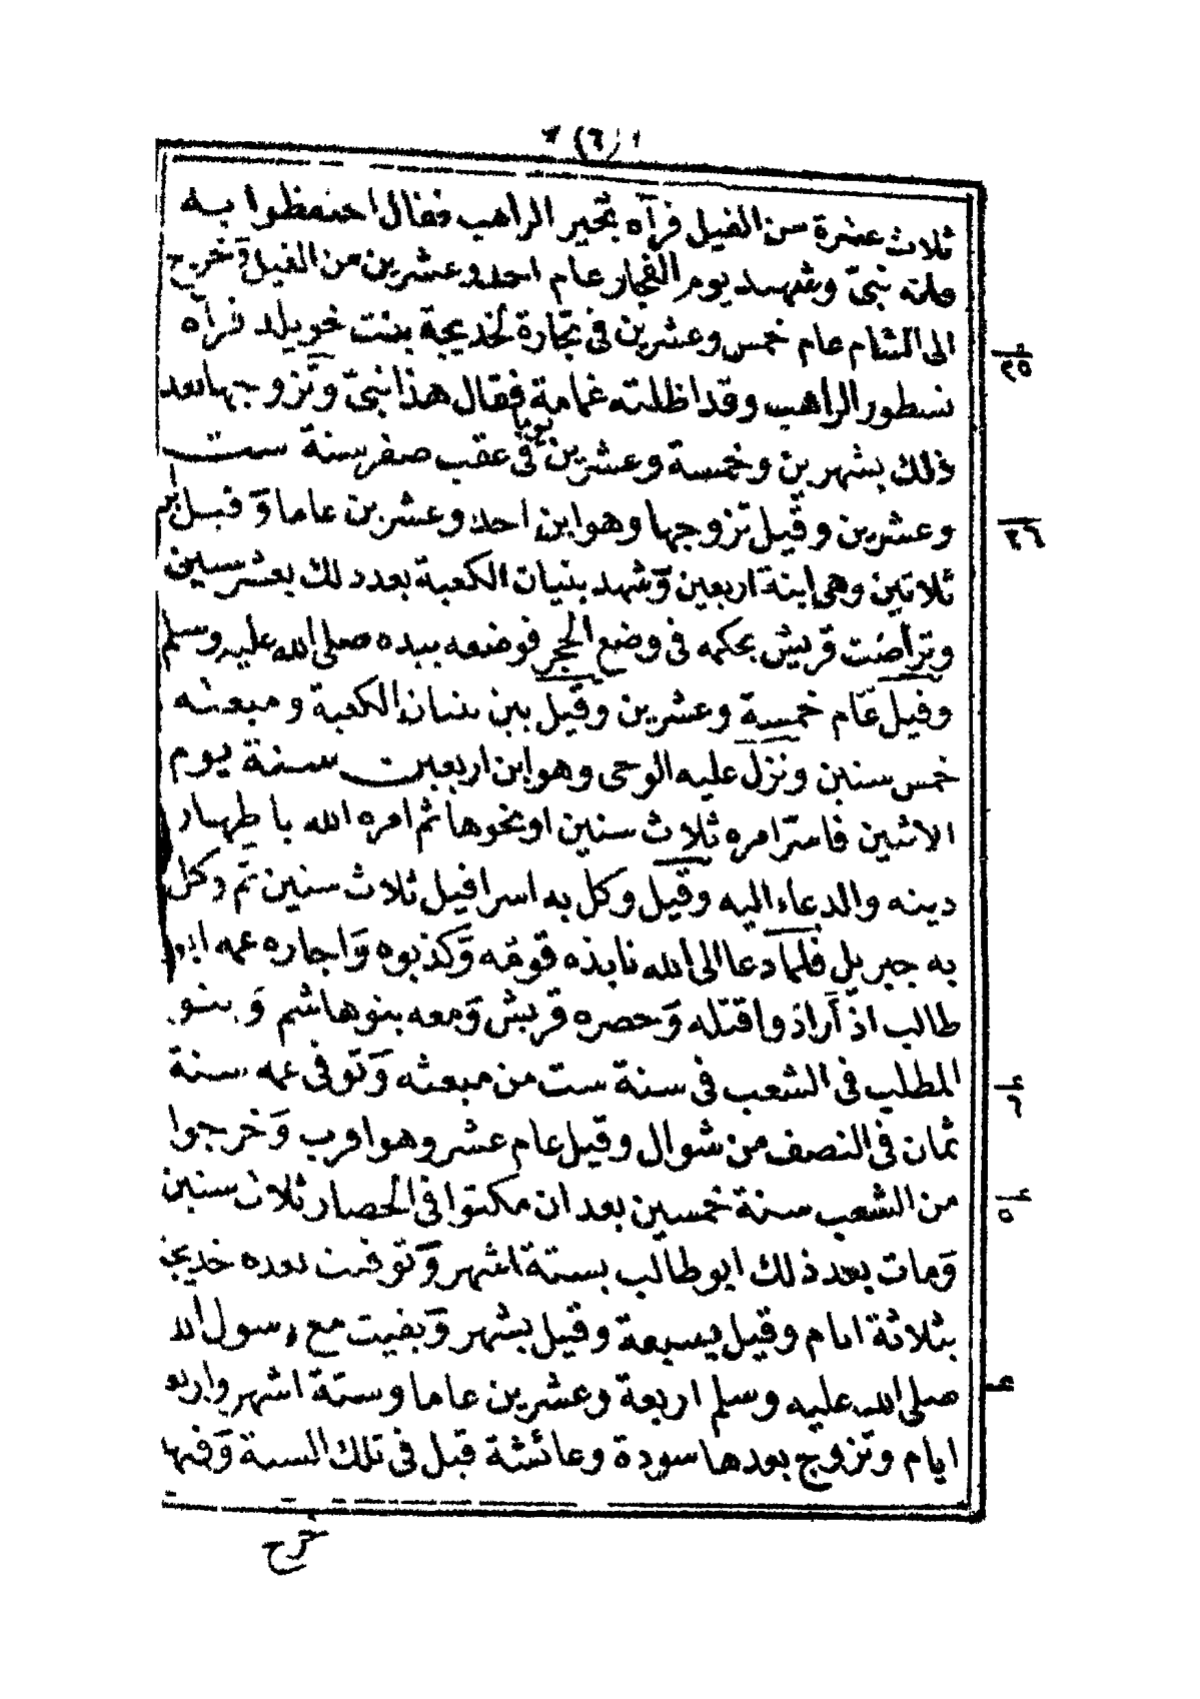 (٦)
ثلاث عشرة من الفيل فرآه بحير الراهب فقال احتفظوا به
فانه نبىّ وشهد يوم الفجار عام احد وعشرين من الفيل وَخرج
الى الشام عام خمس وعشرين فى تجارة لخديجة بنت خويلد فرآه
٢٥
نسطور الراهب وقد اظلته غمامة فقال هذا نبىّ وتَزوجها بعد
ذلك بشهرين وخمسة وعشرين يوما فى عقب صفر سنة ست
وعشرين وقيل تزوجها وهو ابن احد وعشرين عاما وَقيل ابن
٢٦
ثلاثين وهى ابنة اربعين وَشهد بنيان الكعبة بعد ذلك بعشر سنين
وتراضت قريش بحكمه فى وضع الحجر فوضعه بيده صلى الله عليه وسلم
وقيل عام خمسة وعشرين وقيل بين بنيان الكعبة ومبعثه
خمس سنين ونَزل عليه الوحى وهو ابن اربعين سنة يوم
الاثنين فاسرّ امره ثلاث سنين او نحوها ثم امره الله باظهار
دينه والدعاء اليه وقيل وكل به اسرافيل ثلاث سنين ثم وكل
به جبريل فلما دعا الى الله نابذه قومه وَكذبوه وَاجاره عمه ابو
طالب اذ أرادوا قتله وَحصره قريش وَمعه بنو هاشم وَبنو
المطلب فى الشعب فى سنة ست من مبعثه وَتوفى عمه سنة
٦
ثمان فى النصف من شوال وقيل عام عشر وهو اقرب وَخرجوا
من الشعب سنة خمسين بعد ان مكثوا فى الحصار ثلاث سنين
٥
وَمات بعد ذلك ابو طالب بستة اشهر وَتوفيت بعده خديجة
بثلاثة ايام وقيل بسبعة وقيل بشهر وَبقيت مع رسول الله
صلى الله عليه وسلم اربعة وعشرين عاما وستة اشهر واربعة
ايام وتزوج بعدها سودة وعائشة قيل فى تلك السنة وَفيها
خرج